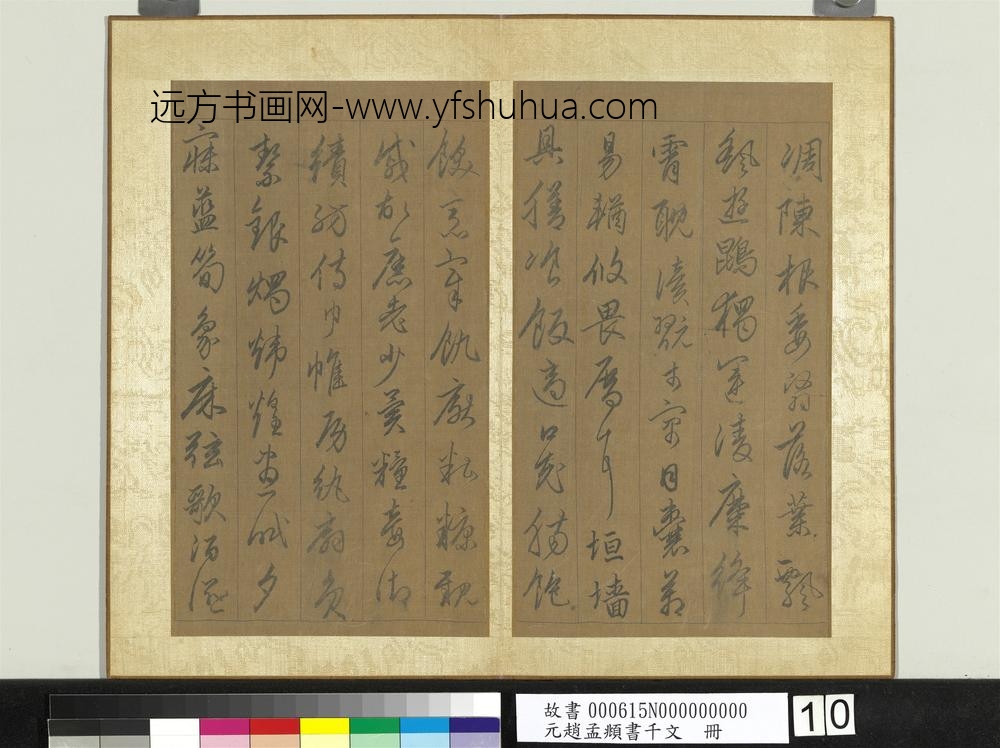 远方书画网-www.yfshuhua.com
凋陳根委翳落葉飄
颻遊鵾獨運凌摩絳
霄耽讀翫市寓目囊箱
易輶攸畏屬耳垣墻
具膳飡飯適口充腸飽
飫烹宰飢厭糟糠親
戚故舊老少異糧妾御
績紡侍巾帷房紈扇員
潔銀燭煒煌晝眠夕
寐藍筍象床弦歌酒讌
故書 000615N000000000
元趙孟頫書千文 冊
10